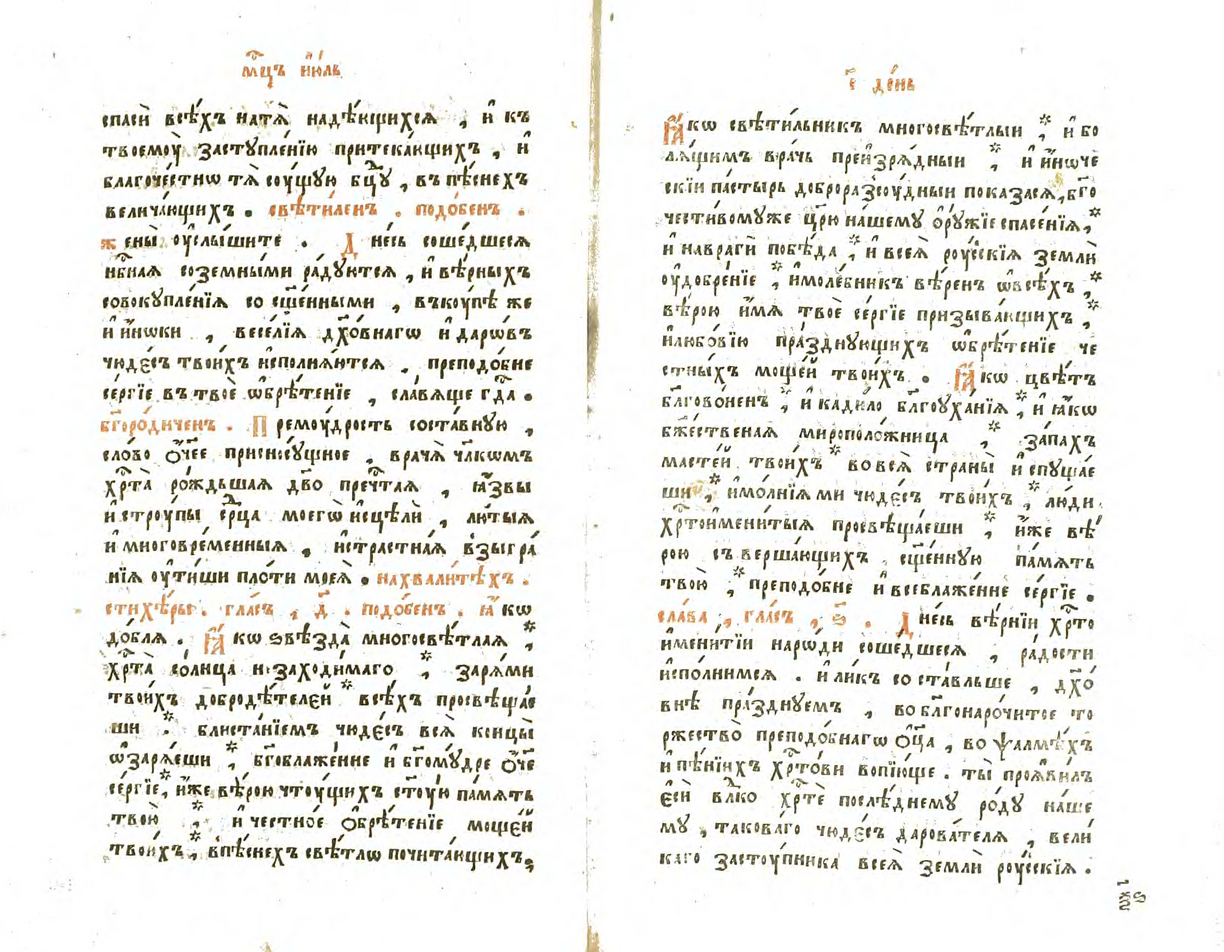 мⷭ҇цъ і҆ю́ль
спасѝ всѣ́хъ натѧ̀ надѣ́ющихсѧ , и҆ къ
твоемꙋ̀ застꙋпле́нїю притека́ющихъ , и҆
благоче́стнѡ тѧ̀ сꙋ́щꙋю бц҃ꙋ , въ пѣ́снехъ
велича́ющихъ . свѣти́ленъ . подо́бенъ .
жены̀ оу҆слы́шите . Дне́сь соше́дшесѧ
нб҃наѧ соземны́ми ра́дꙋютсѧ , и҆ вѣ́рныхъ
совокꙋпле́нїѧ со сщ҃е́нными , въкꙋ́пѣ же
и҆ и҆́нѡки , весе́лїѧ дх҃о́внагѡ и҆ дарѡ́въ
чюде́съ твои́хъ и҆сполнѧ́ютсѧ . преподо́бне
се́ргїе въ твоѐ ѡ҆брѣ́тенїе , сла́вѧще гд҇а .
бг҃оро́диченъ . Премꙋ́дрость соста́внꙋю ,
сло́во ѻ҆́ч҃ее присносꙋ́щное , врача̀ чл҃кѡмъ
хр҇та̀ ро́ждьшаѧ дв҃о преч҇таѧ , ꙗ҆́звы
и҆ стрꙋ́пы се́рⷣца моегѡ̀ и҆сцѣлѝ , лю́тыѧ
и҆ многовре́менныѧ , и҆ стра́стнаѧ взыгра́
нїѧ оу҆тишѝ пло́ти моеѧ̀ . нахвали́тѣхъ .
стихѣ́ры . гла́съ , д҃ . подо́бенъ . ꙗ҆́кѡ
до́блѧ . Ꙗ҆́кѡ ѕвѣзда̀ многосвѣ́тлаѧ *
хр҇та̀ со́лнца незаходи́маго , * зарѧ́ми
твои́хъ добродѣ́телей * всѣ́хъ просвѣща́е
ши . * блиста́нїемъ чюде́съ всѧ̀ концы̀
ѡ҆зарѧ́еши , * бг҃облаже́нне и҆ бг҃омꙋ́дре ѻ҆́ч҃е
се́ргїе , * и҆́же вѣ́рою чтꙋ́щихъ ст҃ꙋ́ю па́мѧть
твою̀ , * и҆ честно́е ѻ҆брѣ́тенїе моще́й
твои́хъ , * впѣ́снехъ свѣ́тлѡ почита́ющихъ ,
е҃ де́нь
Ꙗ҆́кѡ свѣти́льникъ многосвѣ́тлыи , * и҆ бо
лѧ́щимъ вра́чь преи҆зрѧ́дныи , * и҆ и҆́ноче
скїи па́стырь доброразсꙋ́дныи показа́сѧ , бл҃го
чести́вомꙋже цр҃ю̀ на́шемꙋ ѻ҆рꙋ́жїе спасе́нїѧ , *
и҆ наврагѝ побѣ́да , * и҆ всеѧ̀ рꙋ́сскїѧ землѝ
оу҆добре́нїе , * и҆ моле́бникъ вѣ́ренъ ѡ҆всѣ́хъ , *
вѣ́рою и҆́мѧ твоѐ се́ргїе призыва́ющихъ , *
и҆ любо́вїю пра́зднꙋющихъ ѡ҆брѣ́тенїе че
стны́хъ моще́й твои́хъ . Ꙗ҆́кѡ цвѣ́тъ
бл҃гово́ненъ , * и҆ кади́ло бл҃гоꙋха́нїѧ , * и҆ ꙗ҆́кѡ
бж҃е́ственаѧ мироположница , * за́пахъ
масте́й твои́хъ * во всѧ̀ страны̀ и҆спꙋща́е
ши , * и҆ мо́лнїѧми чюде́съ твои́хъ , * лю́ди
хр҇тоимени́тыѧ просвѣща́еши , * и҆́же вѣ́
рою съверша́ющихъ , сщ҃е́ннꙋю па́мѧть
твою̀ , * преподо́бне и҆ всеблаже́нне се́ргїе .
сла́ва , гла́съ , ѕ҃ . Дне́сь вѣ́рнїи хр҇то
имени́тїи наро́ди соше́дшесѧ , ра́дости
и҆спо́лнимсѧ . и҆ ли́къ соста́вльше , дх҃о́
внѣ пра́зднꙋемъ , во бл҃гонаро́читое то
ржество̀ преподо́бнагѡ ѻ҆ц҃а̀ , во ѱалмѣ́хъ
и҆ пѣ́нїихъ хр҇то́ви вопїю́ще . ты̀ проѧви́лъ
є҆сѝ вл҃ко хр҇тѐ послѣ́днемꙋ ро́дꙋ на́ше
мꙋ , такова́го чюде́съ дарова́телѧ , вели́
каго засту́пника всеѧ̀ землѝ рꙋ́сскїѧ .